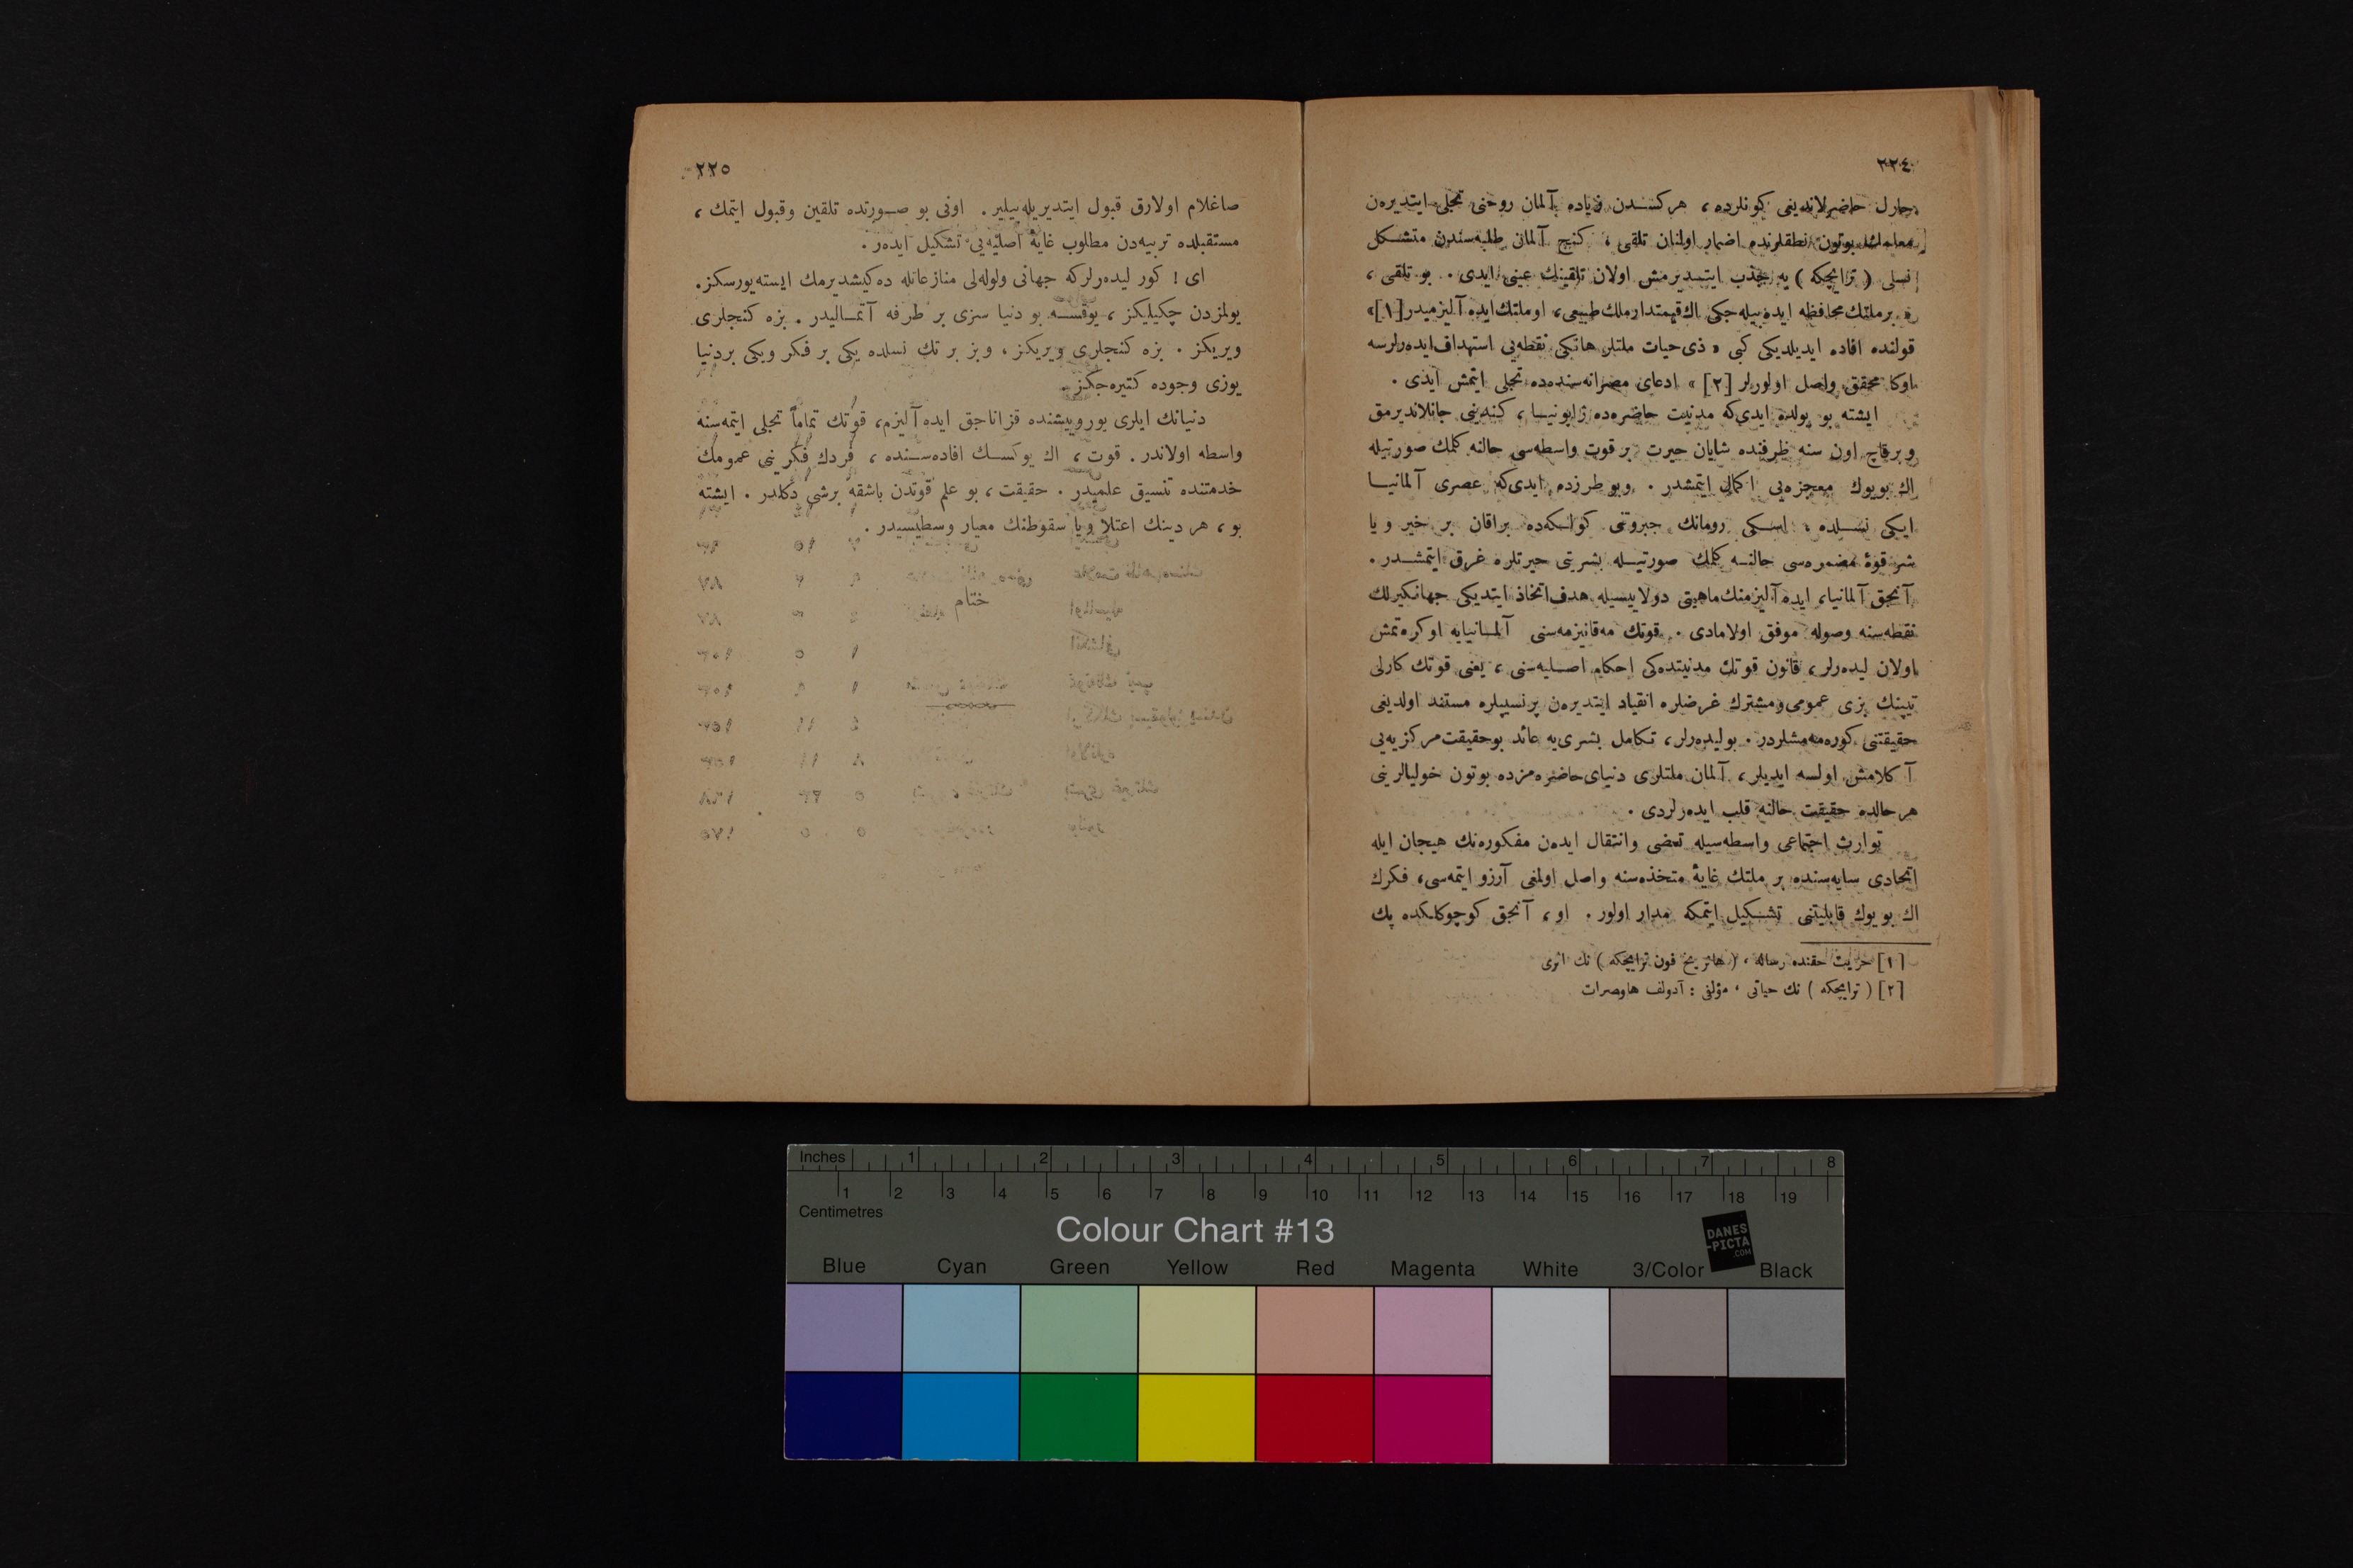 ٢٢٤
حاضرلاندیغی کونلرده ، هرکسدن زیاده آلمان روحنی تجلی ایتدیره‌ن
معلمك بوتون نطقلرنده اضمار اولنان تلقی ، کنج آلمان طلبه‌سندن متشکل
نسلی ( ترایچکه ) یه جذب ایتدیرمش اولان تلقینك عینی ایدی . بو تلقی ،
« برملتك محافظه ایده‌بیله‌جکی اك قیمتدار ملك طبیعی ، او ملتك ایده آلیزمیدر [١] »
قولنده افاده ایدیلدیکی کبی « ذی حیات ملتلر هانکی نقطه‌یی استهداف ایده‌رلرسه
اوکا محقق واصل اولورلر [٢] » ادعای مصرانه‌سنده‌ده تجلی ایتمش ایدی .
ایشته بو یولده ایدی‌که مدنیت حاضره‌ده ژاپونیا ، کندینی جانلاندیرمق
و برقاچ اون سنه ظرفنده شایان حیرت بر قوت واسطه‌سی حالنه کلمك صورتیله
اك بویوك معجزه‌یی اکمال ایتمشدر . وبو طرزده ایدی‌که عصری آلمانیا
ایکی نسلده ، اسکی رومانك جبروتنی کولکه‌ده براقان بر خیر و یا
شر قوهٔ مضمره‌سی حالنه کلمك صورتیله بشریتی حیرتلره غرق ایتمشدر .
آنجق آلمانیا ، ایده آلیزمنك ماهیتی دولاییسیله هدف اتخاذ ایتدیکی جهانکیرلك
نقطه‌سنه وصوله موفق اولامادی . قوتك مه‌قانیزمه‌سنی آلمانیایه اوکره‌تمش
اولان لیده‌رلر ، قانون قوتك مدنیتده‌کی احکام اصلیه‌سنی ، یعنی قوتك کارلی
تیپنك بزی عمومی و مشترك غرضلره انقیاد ایتدیره‌ن پرنسیپلره مستند اولدیغی
حقیقتنی کوره‌مه‌مشلردر . بو لیده‌رلر ، تکامل بشری‌یه عائد بو حقیقت مرکزیه‌یی
آکلامش اولسه ایدیلر ، آلمان ملتلری دنیای حاضره‌مزده بوتون خولیالرینی
هر حالده حقیقت حالنه قلب ایده‌رلردی .
توارث اجتماعی واسطه‌سیله تعضی وانتقال ایده‌ن مفکوره‌نك هیجان ایله
اتحادی سایه‌سنده بر ملتك غایهٔ متخذه‌سنه واصل اولمغی آرزو ایتمه‌سی ، فکرك
اك بویوك قابلیتنی تشکیل ایتمکه مدار اولور . او ، آنجق کوچوکلکده پك
[١] حریت حقنده رساله ، ( هانریخ فون ترایچکه ) نك اثری
[٢] ( ترایچکه ) نك حیاتی ، مؤلفی : آدولف هاوصرات
٢٢٥
صاغلام اولارق قبول ایتدیریله‌بیلیر . اونی بو صورتده تلقین وقبول ایتمك ،
مستقبلده تربیه‌دن مطلوب غایهٔ اصلیه‌یی تشکیل ایده‌ر .
ای ! کور لیده‌رلرکه جهانی ولوله‌لی منازعاتله ده‌کیشدیرمك ایسته‌یورسکز .
یولمزدن چکیلیکز ، یوقسه بو دنیا سزی بر طرفه آتمالیدر . بزه کنجلری
ویریکز . بزه کنجلری ویریکز ، وبز بر تك نسلده یکی بر فکر ویکی بر دنیا
یوزی وجوده کتیره‌جکز .
دنیانك ایلری یورویشنده قزاناجق ایده آلیزم ، قوتك تماماً تجلی ایتمه‌سنه
واسطه اولاندر . قوت ، اك یوکسك افاده‌سنده ، فردك فکرینی عمومك
خدمتنده تنسیق علمیدر . حقیقت ، بو علم قوتدن باشقه برشی دکلدر . ایشته
بو ، هر دینك اعتلا ویا سقوطنك معیار وسطیسیدر .
ختام
Inches 1 2 3 4 5 6 7 8
1 2 3 4 5 6 7 8 9 10 11 12 13 14 15 16 17 18 19
Centimetres
Colour Chart #13
DANES
-PICTA
.COM
Blue Cyan Green Yellow Red Magenta White 3/Color Black